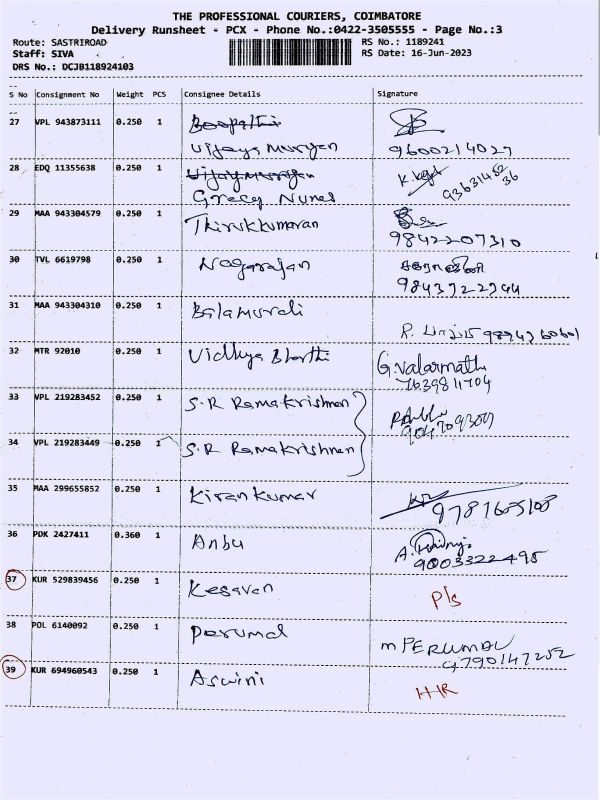 THE PROFESSIONAL COURIERS, COIMBATORE
Delivery Runsheet - PCX - Phone No.:0422-3505555 - Page No.:3
Route: SASTRIROAD RS No.: 1189241
Staff: SIVA RS Date: 16-Jun-2023
DRS No.: DCJB118924103
S No Consignment No Weight PCS Consignee Details Signature
27 VPL 943873111 0.250 1 Boopathi
Vijaya Murugan 9600214027
28 EDQ 11355638 0.250 1
Grecy Nunes
29 MAA 943304579 0.250 1 Thirukkumaran
9842207310
30 TVL 6619798 0.250 1 Nagarajan
9843722944
31 MAA 943304310 0.250 1 Balamurali
32 MTR 92010 0.250 1 Vidhya Bharthi G.Valarmathi
7639811704
33 VPL 219283452 0.250 1 S.R Ramakrishnan
34 VPL 219283449 0.250 1 S.R Ramakrishnan
35 MAA 299655852 0.250 1 Kiran Kumar
36 PDK 2427411 0.360 1 Anbu
9003322495
37 KUR 529839456 0.250 1 Kesavan P/s
38 POL 6140092 0.250 1 Perumal M PERUMAL
9790147252
39 KUR 694960543 0.250 1 Aswini